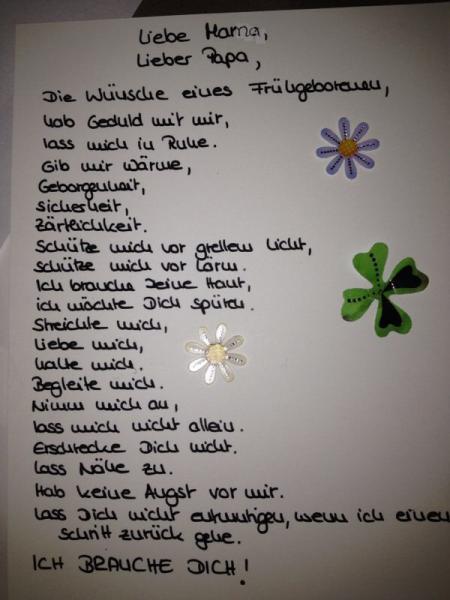 Liebe Mama,
Lieber Papa,
Die Wünsche eines Frühgeborenen,
hab Geduld mit mir,
lass mich in Ruhe.
Gib mir Wärme,
Geborgenheit,
Sicherheit,
Zärtlichkeit.
Schütze mich vor grellem Licht,
schütze mich vor Lärm.
Ich brauche Deine Haut,
ich möchte Dich spüren.
Streichle mich,
Liebe mich,
halte mich.
Begleite mich.
Nimm mich an,
lass mich nicht allein.
Erschrecke Dich nicht.
Lass Nähe zu.
Hab keine Angst vor mir.
Lass Dich nicht entmutigen, wenn ich einen
Schritt zurück gehe.
ICH BRAUCHE DICH!